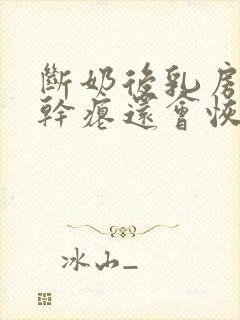 斷奶後乳房
幹瘪還會恢
冰山_